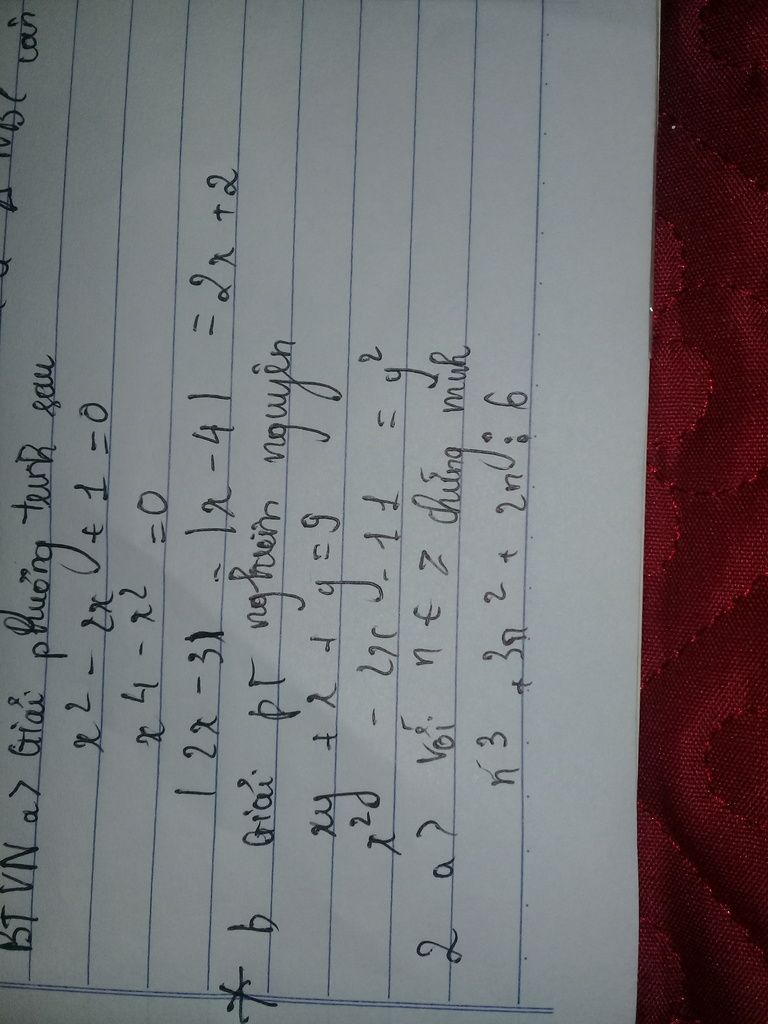 BTVN a> Giải phương trình sau
x² - 2x + 1 = 0
x4 - x² = 0
|2x - 3| - |x - 4| = 2x + 2
* b Giải PT nghiệm nguyên
xy + x + y = 9
x²y - 2xy - 11 = y²
2 a> Với n ∈ Z chứng minh
n³ + 3n² + 2n ⋮ 6